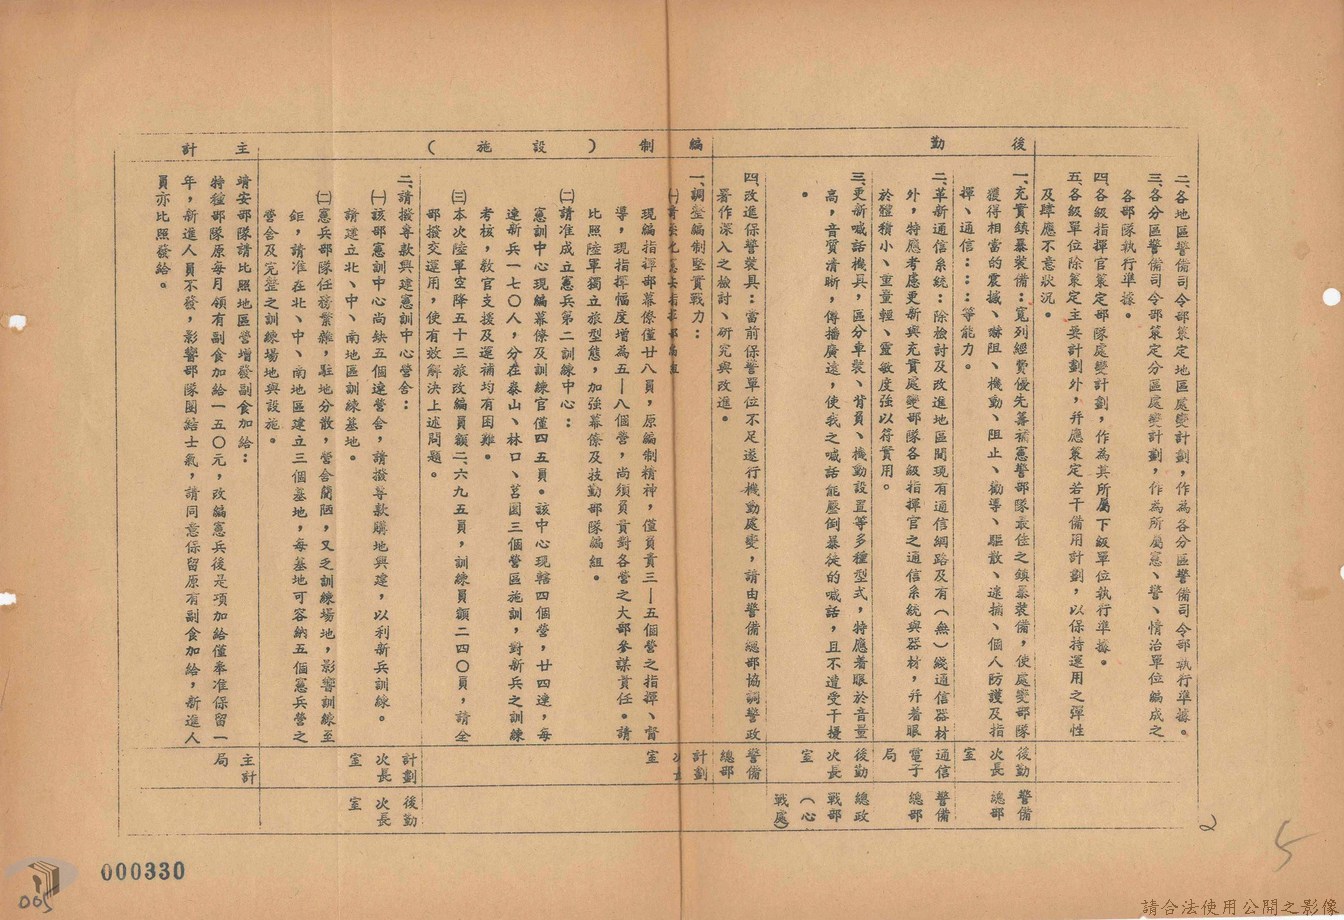 二、各地區警備司令部策定地區處變計劃，作為各分區警備司令部執行準據。
三、各分區警備司令部策定分區處變計劃，作為所屬憲、警、情治單位編成之
各部隊執行準據。
四、各級指揮官策定部隊處變計劃，作為其所屬下級單位執行準據。
五、各級單位除策定主要計劃外，并應策定若干備用計劃，以保持運用之彈性
及肆應不意狀況。
後勤
一、充實鎮暴裝備：寬列經費優先籌補憲警部隊最佳之鎮暴裝備，使處變部隊
獲得相當的震撼、嚇阻、機動、阻止、勸導、驅散、逮捕、個人防護及指
揮、通信：：：等能力。
後勤
次長
室
警備
總部
二、革新通信系統：除檢討及改進地區間現有通信網路及有（無）綫通信器材
外，特應考慮更新與充實處變部隊各級指揮官之通信系統與器材，并着眼
於體積小、重量輕、靈敏度強以符實用。
通信
電子
局
警備
總部
三、更新喊話機具，區分車裝、背負、機動設置等多種型式，特應着眼於音量
高，音質清晰，傳播廣遠，使我之喊話能壓倒暴徒的喊話，且不遭受干擾
。
後勤
次長
室
總政
戰部
（心
戰處）
四、改進保警裝具：當前保警單位不足遂行機動處變，請由警備總部協調警政
署作深入之檢討、研究與改進。
警備
總部
編制（設施）
一、調整編制堅實戰力：
㈠請
現編指揮部幕僚僅廿八員，原編制精神，僅負責三—五個營之指揮、督
導，現指揮幅度增為五—八個營，尚須負責對各營之大部參謀責任。請
比照陸軍獨立旅型態，加強幕僚及技勤部隊編組。
㈡請准成立憲兵第二訓練中心：
憲訓中心現編幕僚及訓練官僅四五員。該中心現轄四個營，廿四連，每
連新兵一七〇人，分在泰山、林口、莒園三個營區施訓，對新兵之訓練
考核，教官支援及選補均有困難。
㈢本次陸軍空降五十三旅改編員額二、六九五員，訓練員額二四〇員，請全
部撥交運用，使有效解決上述問題。
計劃
室
二、請撥專款興建憲訓中心營舍：
㈠該部憲訓中心尚缺五個連營舍，請撥專款購地興建，以利新兵訓練。
請建立北、中、南地區訓練基地。
㈡憲兵部隊任務繁雜，駐地分散，營舍簡陋，又乏訓練場地，影響訓練至
鉅，請准在北、中、南地區建立三個基地，每基地可容納五個憲兵營之
營舍及完整之訓練場地與設施。
計劃
次長
室
後勤
次長
室
主計
靖安部隊請比照地區營增發副食加給：
特種部隊原每月領有副食加給一五〇元，改編憲兵後是項加給僅奉准保留一
年，新進人員不發，影響部隊團結士氣，請同意保留原有副食加給，新進人
員亦比照發給。
主計
局
2
5
000330
005
請合法使用公開之影像